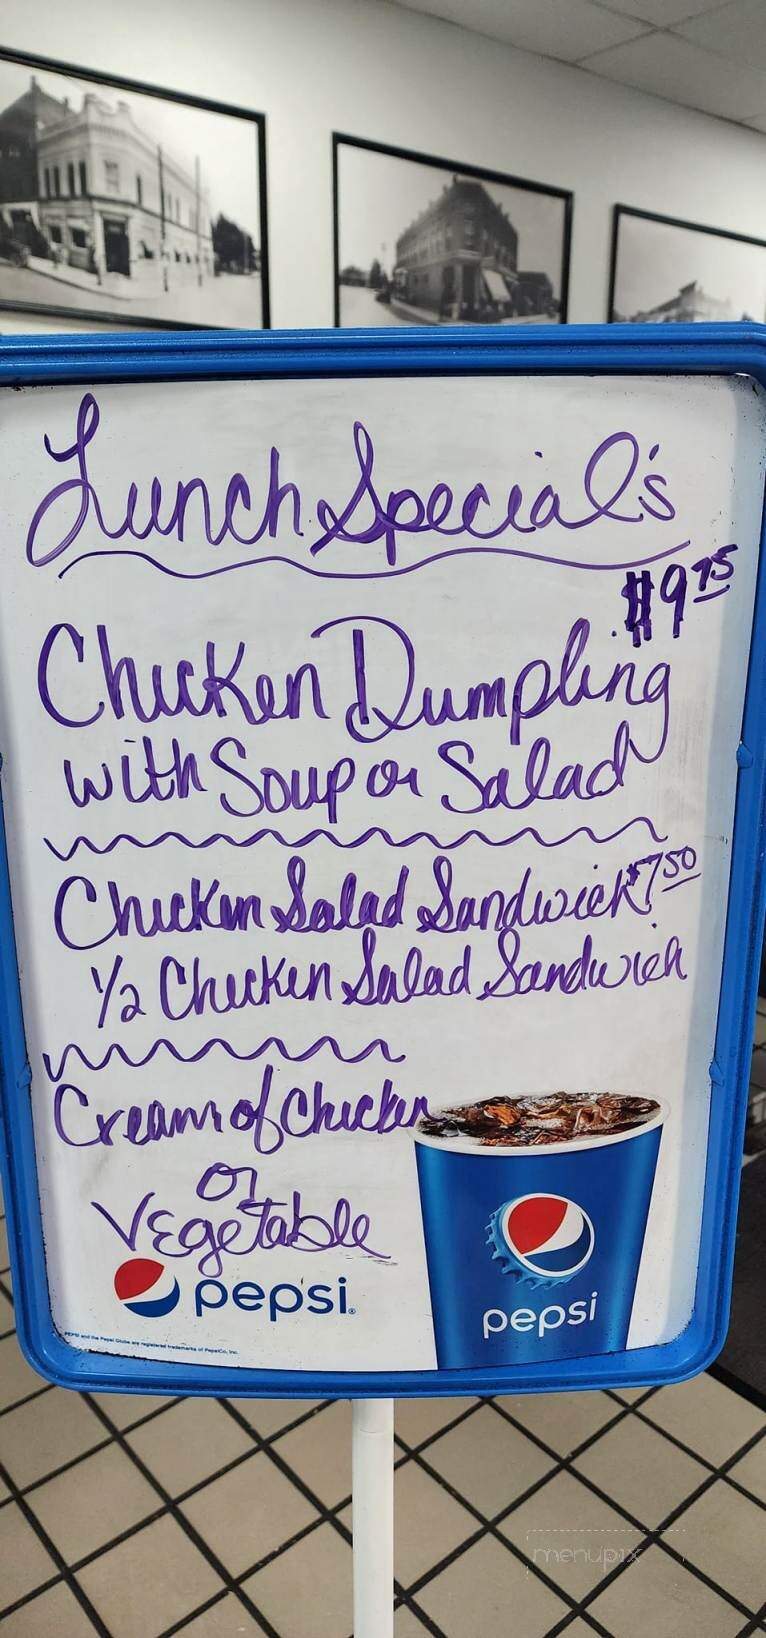 Lunch Special's
$9 75
Chicken Dumpling
with Soup or Salad
Chicken Salad Sandwich $7 50
1/2 Chicken Salad Sandwich
Cream of Chicken
or
Vegetable
pepsi
pepsi
PEPSI and the Pepsi Globe are registered trademarks of PepsiCo, Inc.
menupix